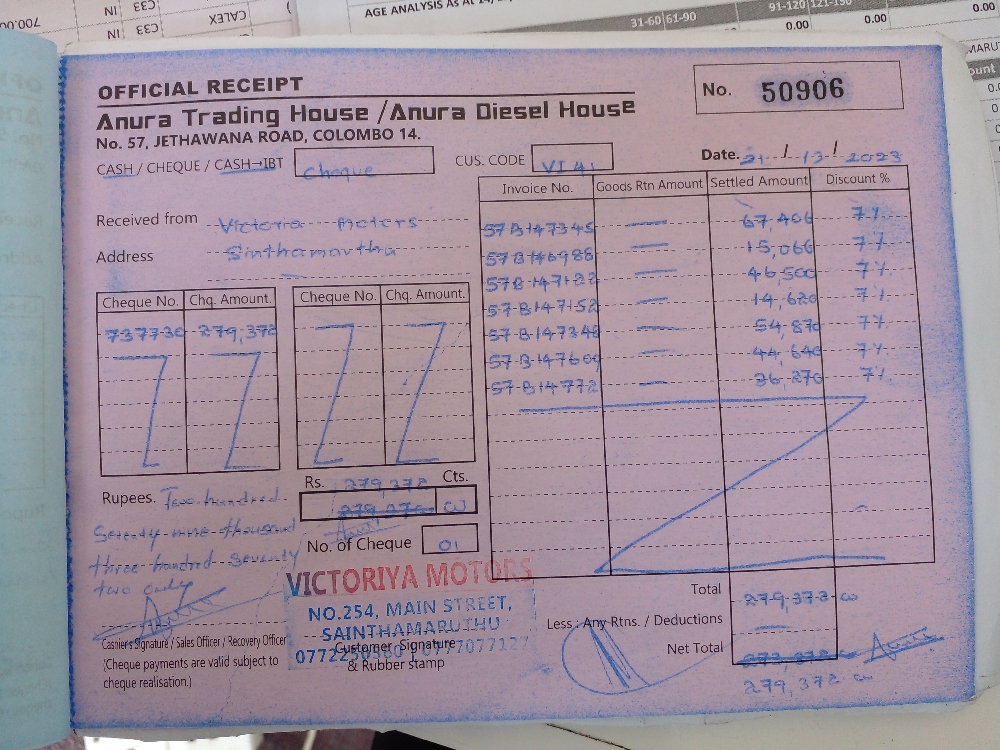 AGE ANALYSIS AS AT
31-60 61-90
91-120 121-150
0.00 0.00 0.00
CALEX
C33 IN
C33 IN
OFFICIAL RECEIPT
No. 50906
Anura Trading House / Anura Diesel House
No. 57, JETHAWANA ROAD, COLOMBO 14.
CASH / CHEQUE / CASH→IBT Cheque
CUS. CODE VI 41
Date. 21/12/2023
Received from Victoria Moters
Address Sinthamarthu
Invoice No. Goods Rtn Amount Settled Amount Discount %
57B147345 — 67,406 7%
57B146988 — 15,066 7%
57B147122 — 46,500 7%
57B147152 — 14,620 7%
57B147348 — 54,870 7%
57B147609 — 44,640 7%
57B14772 — 36,270 7%
Cheque No. Chq. Amount. Cheque No. Chq. Amount.
737730 279,372
Rs. Cts.
279,372
00
Rupees. Two hundred
Seventy nine thousand
three hundred seventy
two only
No. of Cheque 01
VICTORIYA MOTORS
NO.254, MAIN STREET,
SAINTHAMARUTHU
0777077127
Customer Signature
& Rubber stamp
Cashier's Signature / Sales Officer / Recovery Officer
(Cheque payments are valid subject to
cheque realisation.)
Total 279,372-00
Less : Any Rtns. / Deductions —
Net Total
279,372 00